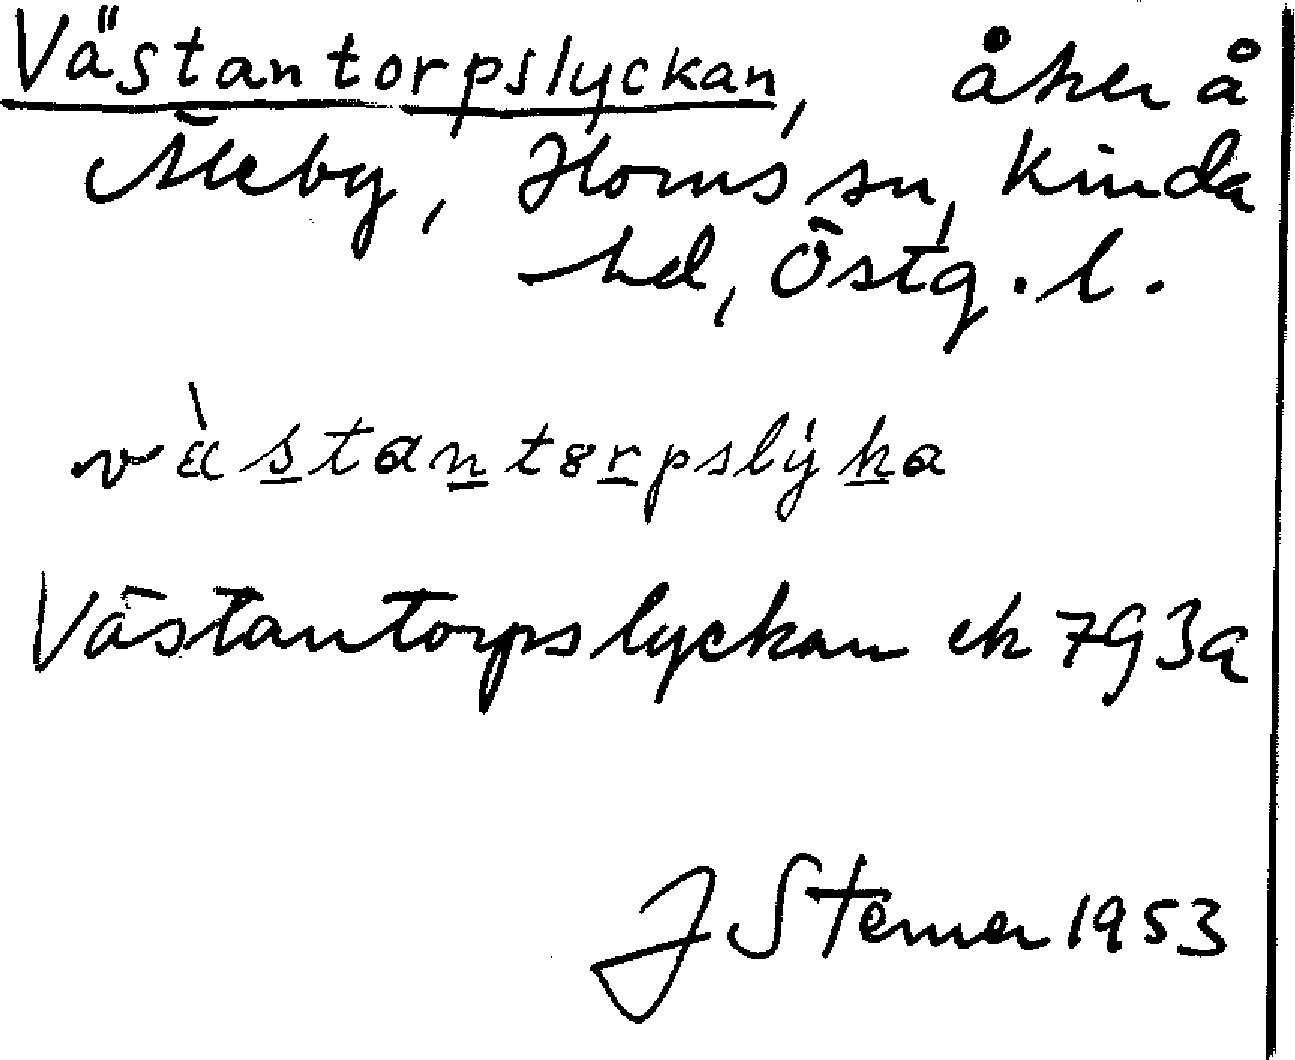 Västantorpslyckan, åker å
Åleby, Horns sn, Kinda
hd, Östg. l.
väs̲tan̲tor̲pslýk̲a
Västantorpslyckan ek 793a
J Sterner 1953